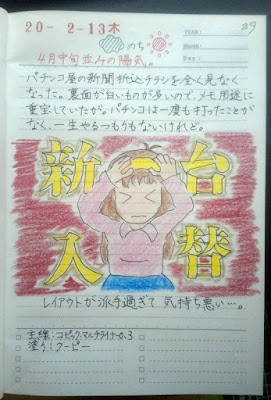 20-2-13木
のち
YEAR:
29
Month:
Day:
4月中旬並みの陽気。
パチンコ屋の新聞折込チラシを全く見なく
なった。裏面が白いものが多いので、メモ用途に
重宝していたが。パチンコは一度も打ったことが
なく、一生やるつもりもないけれど。
新台
入替
レイアウトが派手過ぎて気持ち悪い…。
主線:コピックマルチライナー0.3
塗り:クーピー